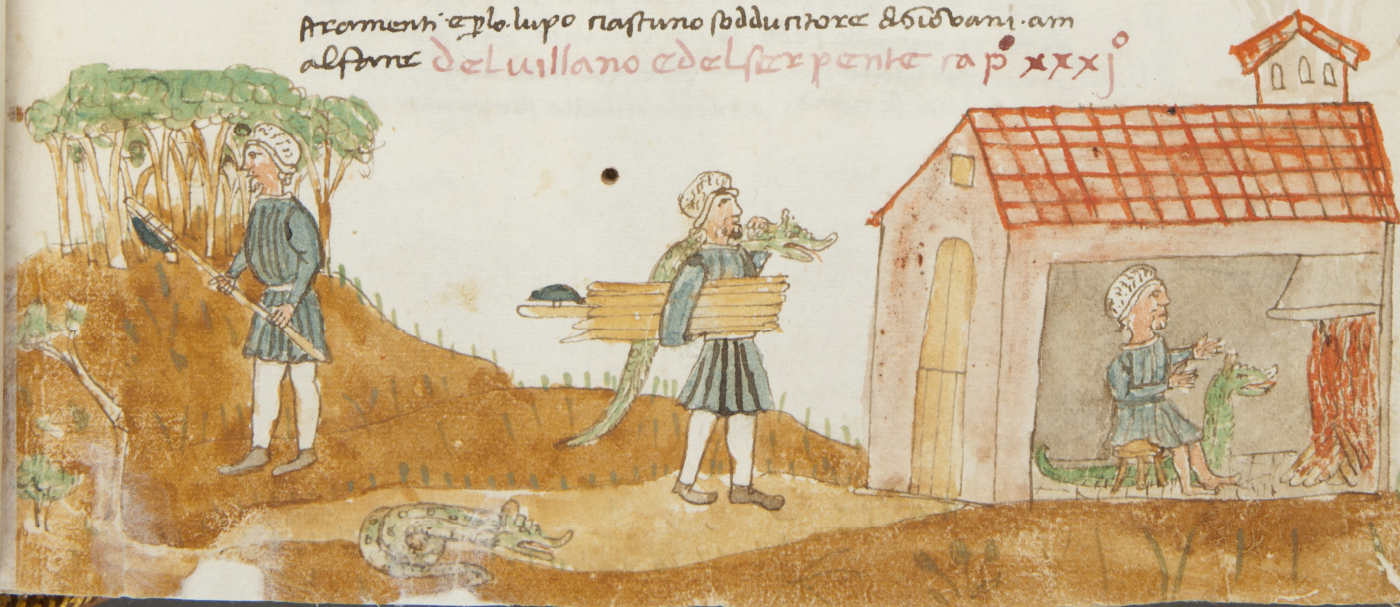 aramenti e p lo lupo ciascuno sodducitore di Giovani. am
alfare del villano e del serpente cap° xxxj°